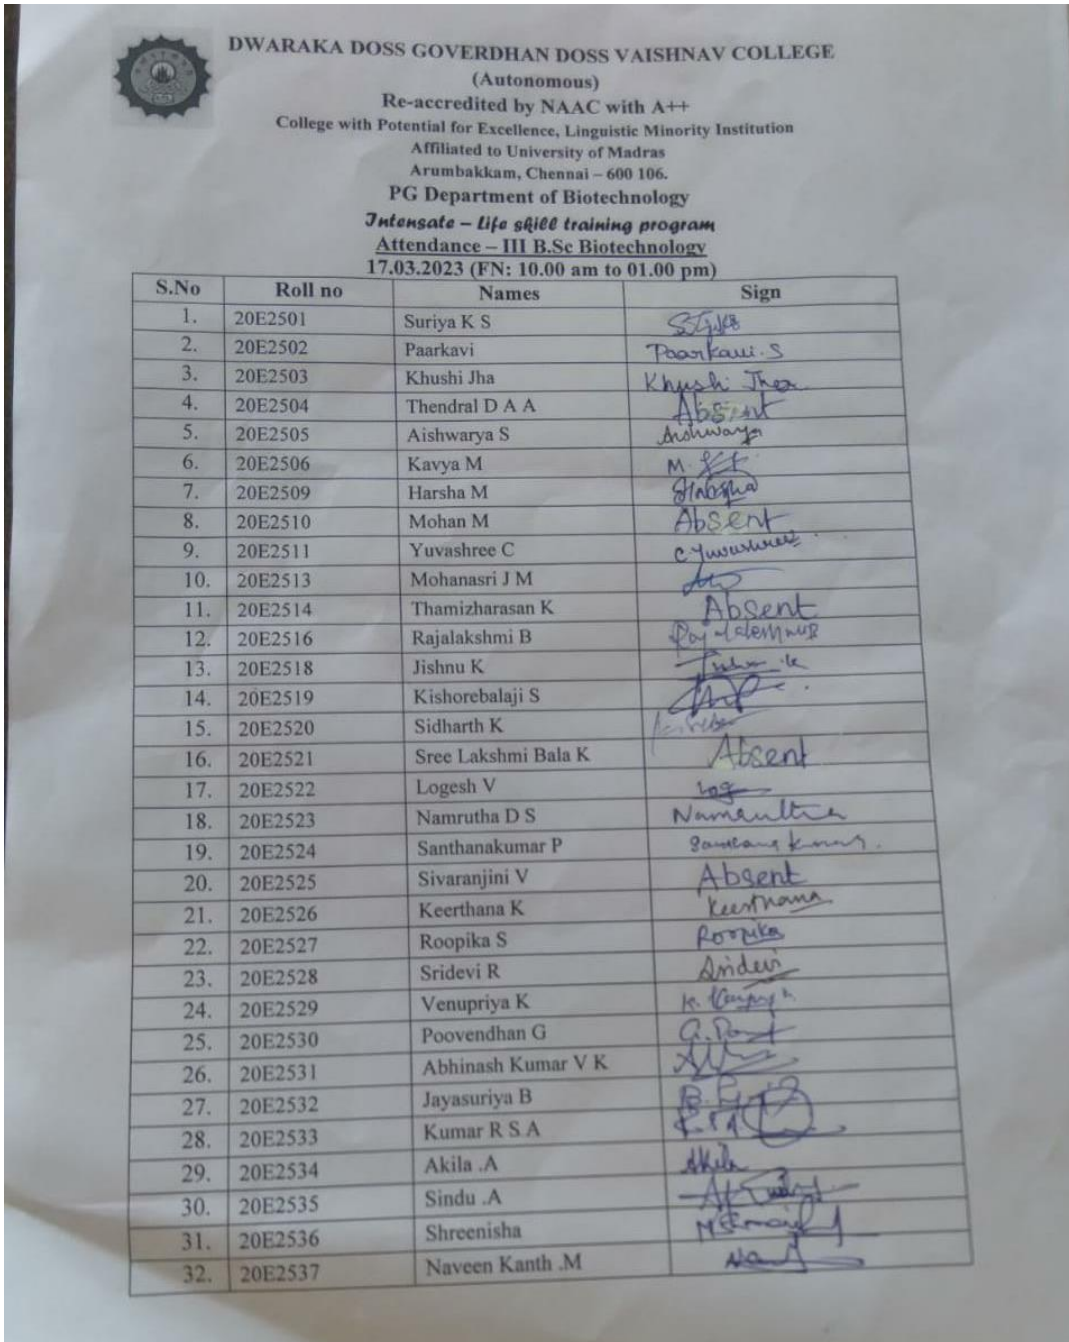 DWARAKA DOSS GOVERDHAN DOSS VAISHNAV COLLEGE
(Autonomous)
Re-accredited by NAAC with A++
College with Potential for Excellence, Linguistic Minority Institution
Affiliated to University of Madras
Arumbakkam, Chennai – 600 106.
PG Department of Biotechnology
Intensate – Life skill training program
Attendance – III B.Sc Biotechnology
17.03.2023 (FN: 10.00 am to 01.00 pm)
S.No Roll no Names Sign
1. 20E2501 Suriya K S
2. 20E2502 Paarkavi Paarkavi.S
3. 20E2503 Khushi Jha Khushi Jha
4. 20E2504 Thendral D A A Absent
5. 20E2505 Aishwarya S Aishwarya
6. 20E2506 Kavya M M.
7. 20E2509 Harsha M Harsha
8. 20E2510 Mohan M Absent
9. 20E2511 Yuvashree C C.Yuvashree
10. 20E2513 Mohanasri J M
11. 20E2514 Thamizharasan K Absent
12. 20E2516 Rajalakshmi B Rajalakshmi
13. 20E2518 Jishnu K
14. 20E2519 Kishorebalaji S
15. 20E2520 Sidharth K
16. 20E2521 Sree Lakshmi Bala K Absent
17. 20E2522 Logesh V Log
18. 20E2523 Namrutha D S Namrutha
19. 20E2524 Santhanakumar P
20. 20E2525 Sivaranjini V Absent
21. 20E2526 Keerthana K Keerthana
22. 20E2527 Roopika S Roopika
23. 20E2528 Sridevi R Sridevi
24. 20E2529 Venupriya K
25. 20E2530 Poovendhan G
26. 20E2531 Abhinash Kumar V K
27. 20E2532 Jayasuriya B
28. 20E2533 Kumar R S A
29. 20E2534 Akila .A Akila
30. 20E2535 Sindu .A
31. 20E2536 Shreenisha
32. 20E2537 Naveen Kanth .M